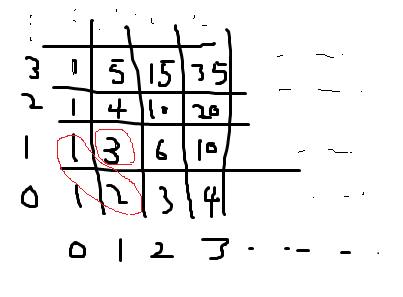 3 1 5 15 35
2 1 4 10 20
1 1 3 6 10
0 1 2 3 4
0 1 2 3